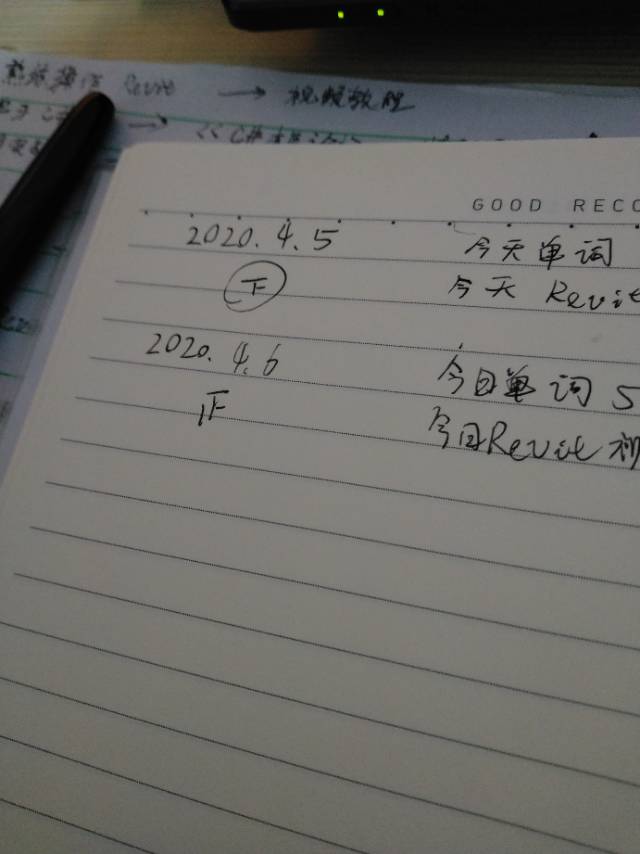 Revit → 视频教程
GOOD RECO
2020.4.5 今天单词
下 今天 Revit
2020.4.6 今日单词 5
正 今日Revit 视